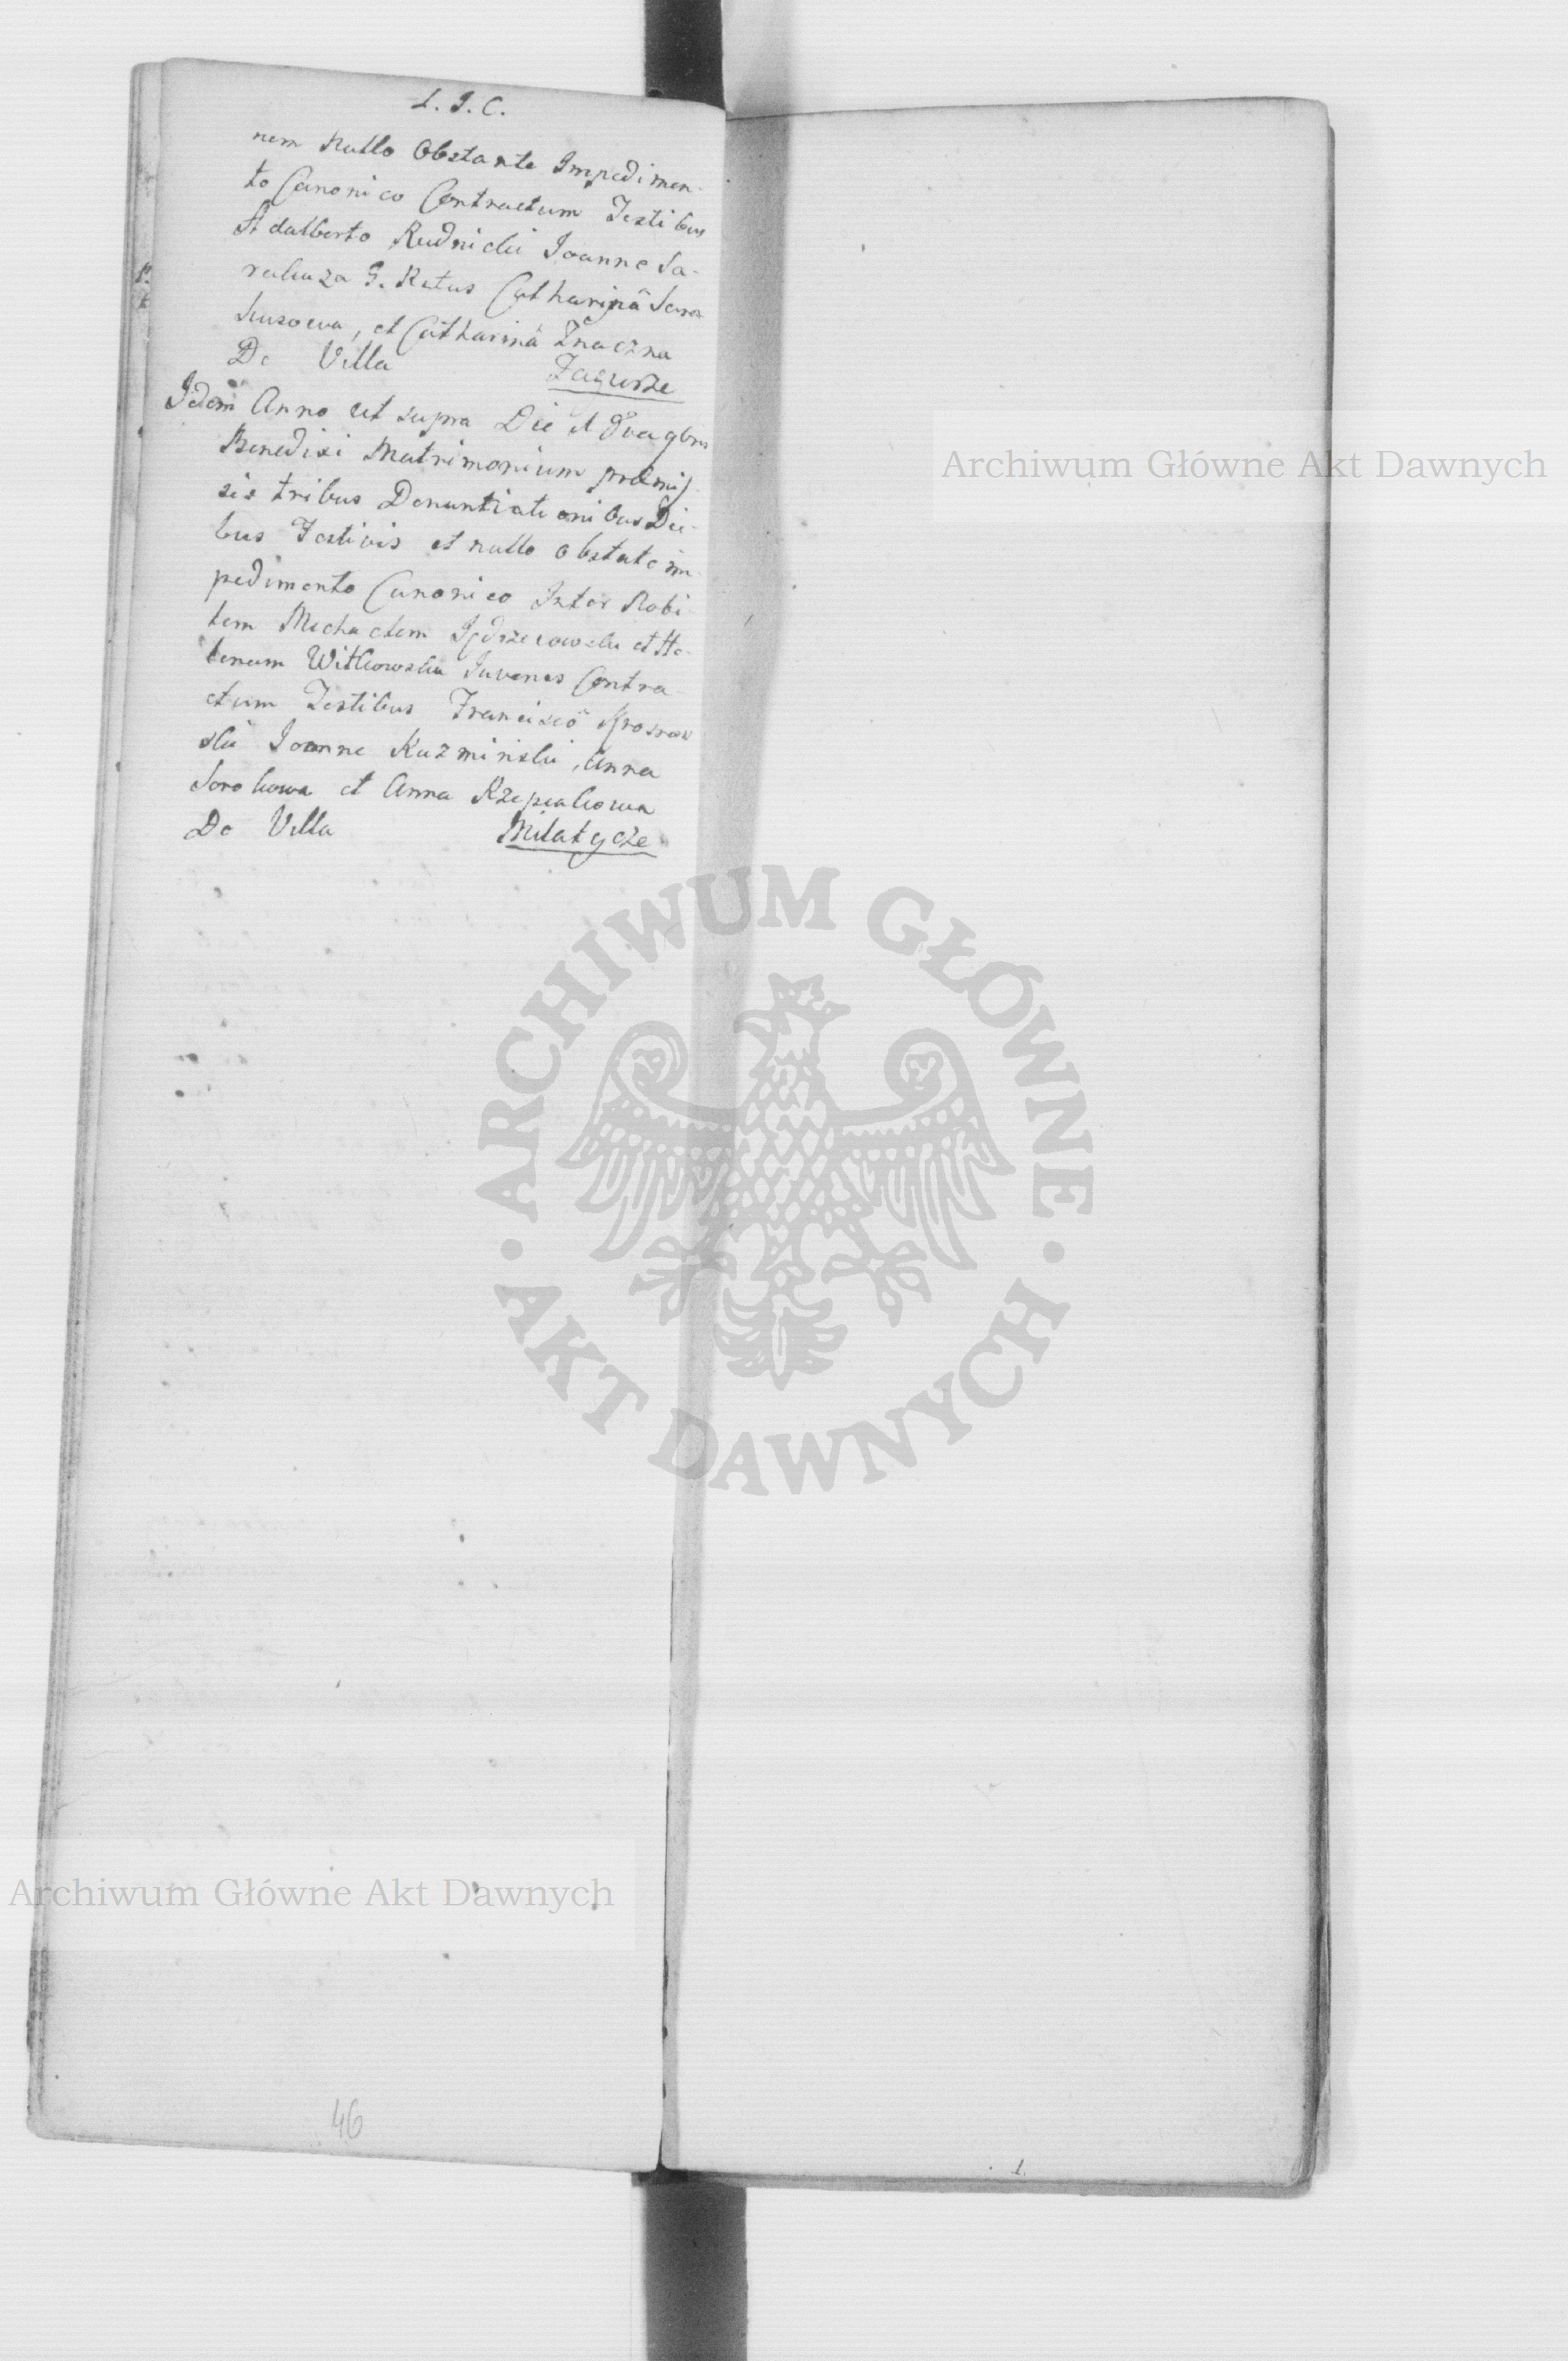 L. J. C.
nem Nullo Obstante Impedimen-
to Canonico Contractum Testibus
Adalberto Rudnicki Joanne Sa-
rakuza G. Ratus Catharinā
et Catharinā Znaczna
De Villa Zagurze
Idem Anno ut supra Die
Benedixi Matrimonium premis-
sis tribus Denuntiationibus Die-
bus Festivis et nullo obstate im-
pedimento Canonico Inter Nobi-
lem Michaelem et He-
lenam Witkowska Juvenes Contra-
ctum Testibus
ski Joanne Kuzminski, Anna
Sorokowa et Anna Rzepiakowa
De Villa Milatycze
Archiwum Główne Akt Dawnych
ARCHIWUM GŁÓWNE
AKT DAWNYCH
Archiwum Główne Akt Dawnych
46
1.